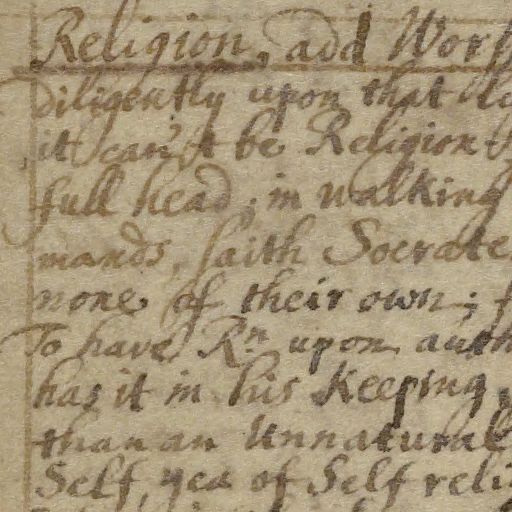 Religion, add Wor
diligently upon that
it can't be Religion
full head; in walking
mands, saith Socrate
none of their own;
To have Rn upon auth
has it in his Keeping,
than an Unnatural
Self, yea of Self reli